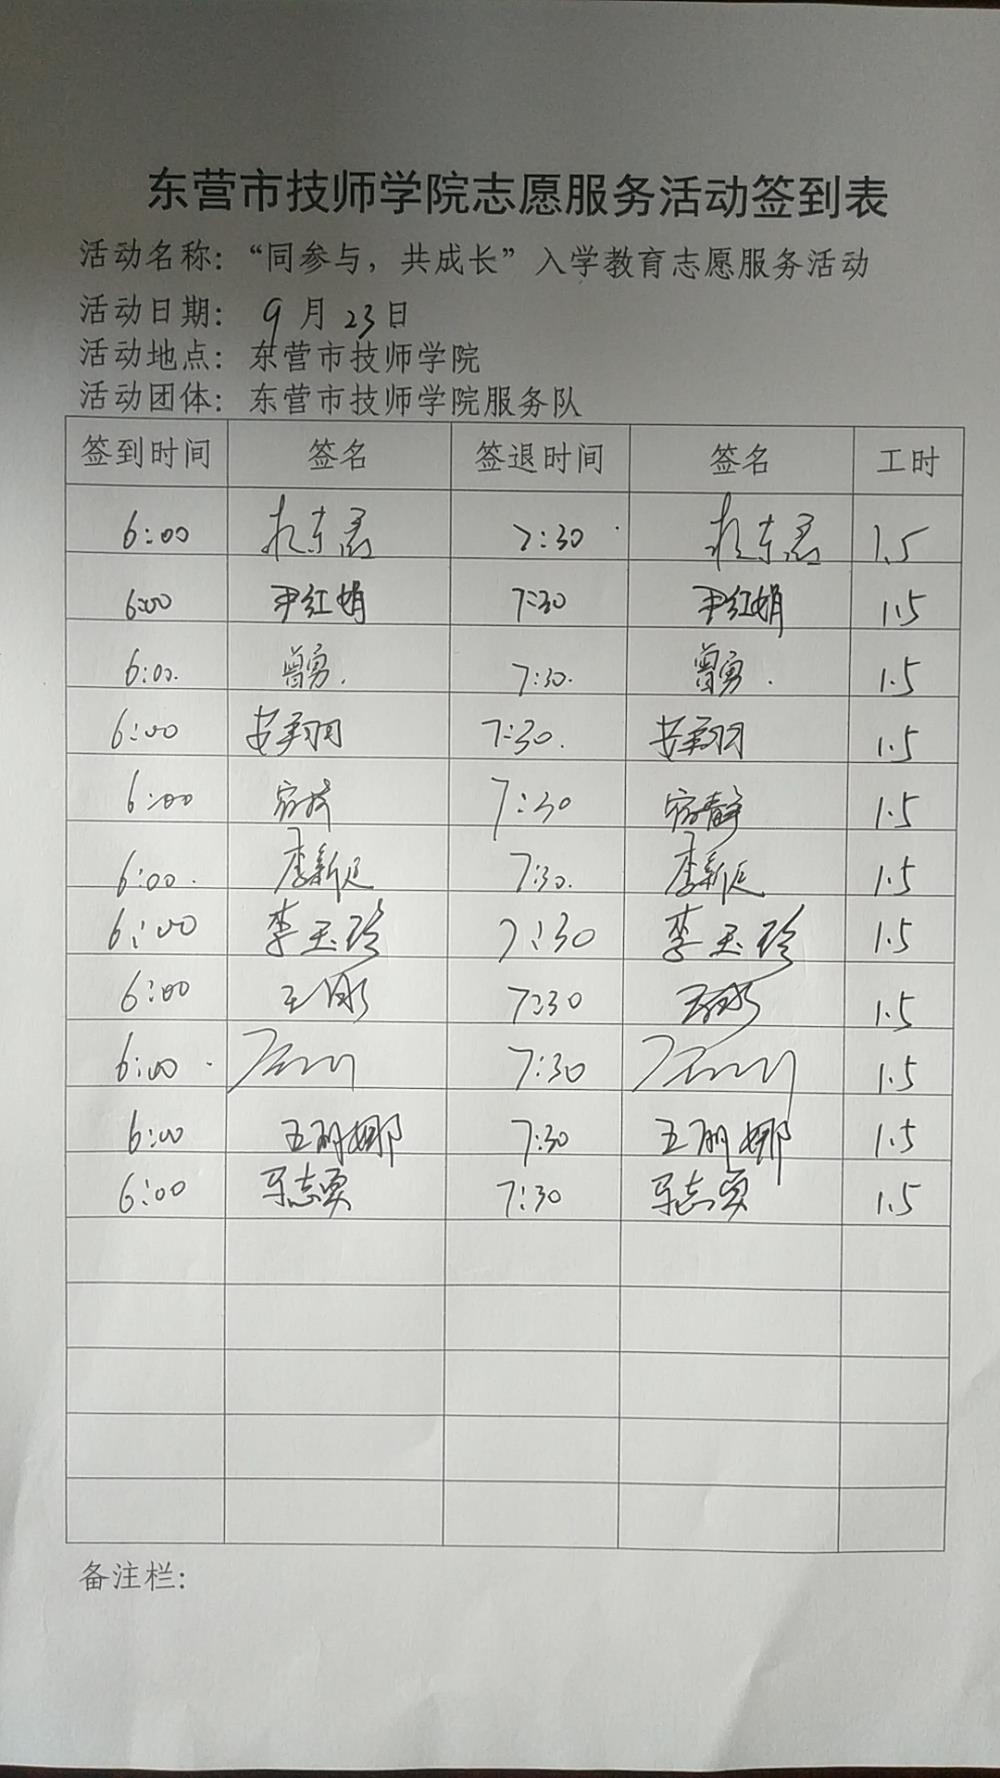 东营市技师学院志愿服务活动签到表
活动名称：“同参与，共成长”入学教育志愿服务活动
活动日期： 9月23日
活动地点： 东营市技师学院
活动团体： 东营市技师学院服务队
签到时间 签名 签退时间 签名 工时
6:00 7:30 1.5
6:00 尹红娟 7:30 尹红娟 1.5
6:00. 曾勇. 7:30. 曾勇. 1.5
6:00 7:30. 1.5
6:00 7:30 1.5
6:00. 李新延 7:30. 李新延 1.5
6:00 李玉珍 7:30 李玉珍 1.5
6:00 7:30 1.5
6:00 7:30 1.5
6:00 王丽娜 7:30 王丽娜 1.5
6:00 7:30 1.5
备注栏：